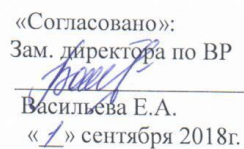 «Согласовано»:
Зам. директора по ВР
Васильева Е.А.
«1» сентября 2018г.